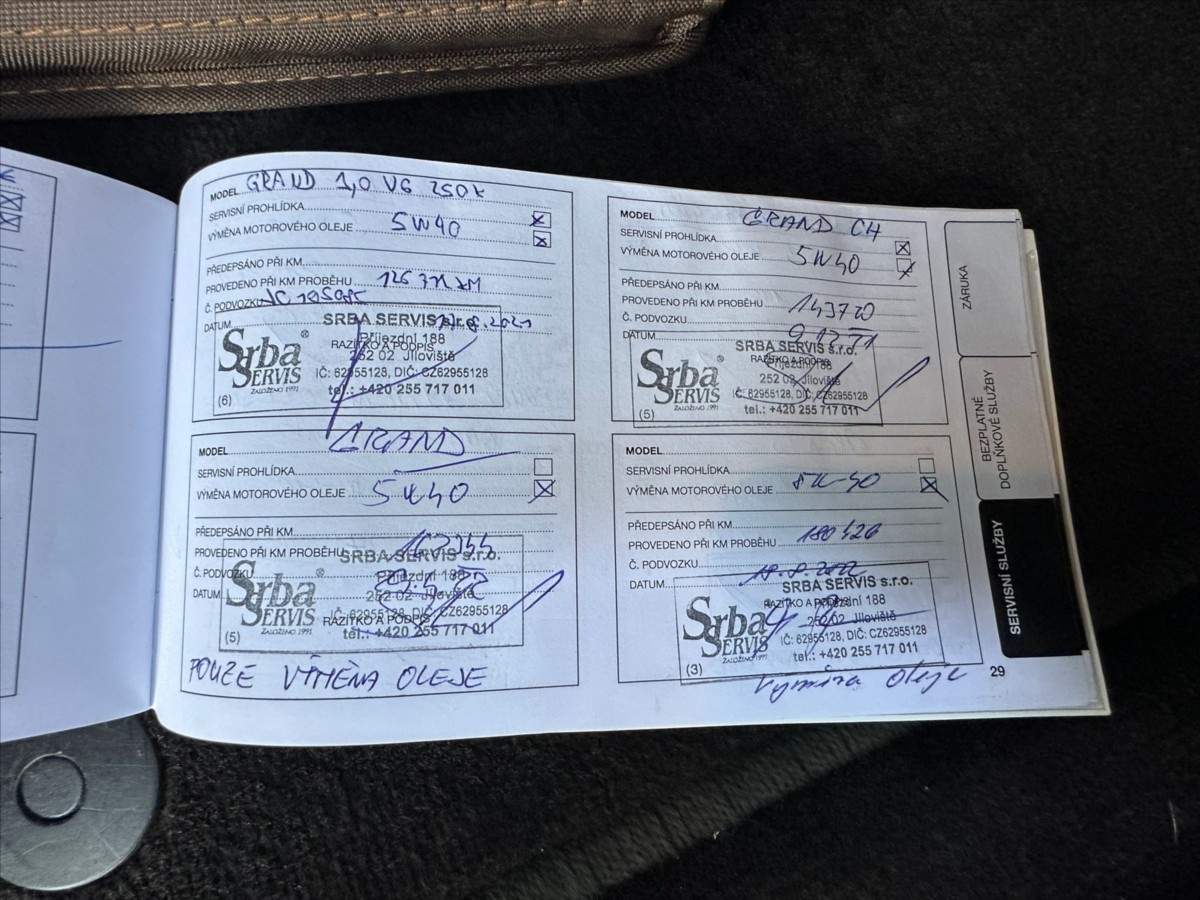 MODEL GRAND
SERVISNÍ PROHLÍDKA
VÝMĚNA MOTOROVÉHO OLEJE 5W40
PŘEDEPSÁNO PŘI KM
PROVEDENO PŘI KM PROBĚHU
Č. PODVOZKU
DATUM
SRBA SERVIS s.r.o.
Příjezdní 188
RAZÍTKO A PODPIS
252 02 Jíloviště
Srba SERVIS
ZALOŽENO 1991
IČ: 62955128, DIČ: CZ62955128
tel.: +420 255 717 011
(6)
MODEL GRAND CH
SERVISNÍ PROHLÍDKA
VÝMĚNA MOTOROVÉHO OLEJE 5W40
PŘEDEPSÁNO PŘI KM
PROVEDENO PŘI KM PROBĚHU 143720
Č. PODVOZKU
DATUM
SRBA SERVIS s.r.o.
RAZÍTKO A PODPIS
Příjezdní 188
252 02 Jíloviště
Srba SERVIS
ZALOŽENO 1991
IČ: 62955128, DIČ: CZ62955128
tel.: +420 255 717 011
(5)
MODEL GRAND
SERVISNÍ PROHLÍDKA
VÝMĚNA MOTOROVÉHO OLEJE 5W40
PŘEDEPSÁNO PŘI KM
PROVEDENO PŘI KM PROBĚHU
Č. PODVOZKU
DATUM
SRBA SERVIS s.r.o.
Příjezdní 188
252 02 Jíloviště
Srba SERVIS
ZALOŽENO 1991
IČ: 62955128, DIČ: CZ62955128
RAZÍTKO A PODPIS
tel.: +420 255 717 011
(5)
POUZE VÝMĚNA OLEJE
MODEL
SERVISNÍ PROHLÍDKA
VÝMĚNA MOTOROVÉHO OLEJE
PŘEDEPSÁNO PŘI KM
PROVEDENO PŘI KM PROBĚHU 180426
Č. PODVOZKU
DATUM
SRBA SERVIS s.r.o.
RAZÍTKO A PODPIS
Příjezdní 188
252 02 Jíloviště
Srba SERVIS
ZALOŽENO 1991
IČ: 62955128, DIČ: CZ62955128
tel.: +420 255 717 011
(3)
oleje
29
ZÁRUKA
BEZPLATNÉ
DOPLŇKOVÉ SLUŽBY
SERVISNÍ SLUŽBY